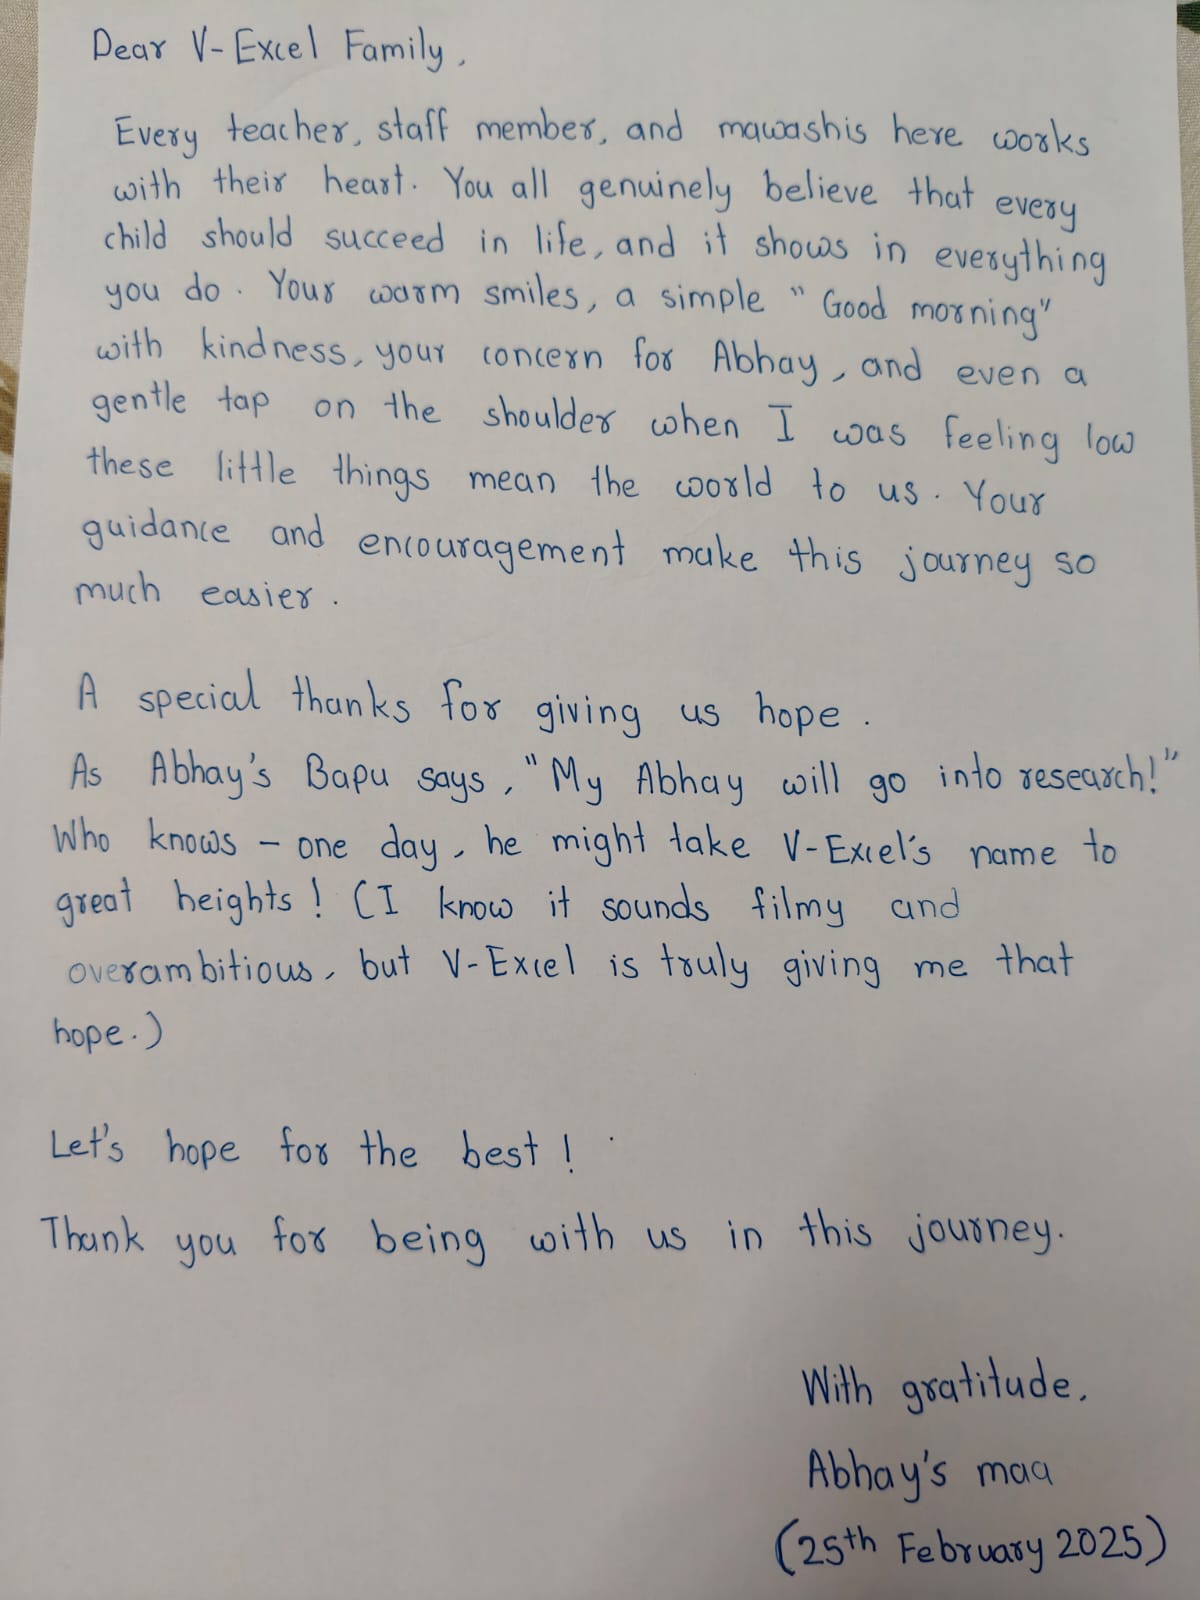 Dear V-Excel Family,
Every teacher, staff member, and mawashis here works
with their heart. You all genuinely believe that every
child should succeed in life, and it shows in everything
you do. Your warm smiles, a simple "Good morning"
with kindness, your concern for Abhay, and even a
gentle tap on the shoulder when I was feeling low
these little things mean the world to us. Your
guidance and encouragement make this journey so
much easier.
A special thanks for giving us hope.
As Abhay's Bapu says, "My Abhay will go into research!"
Who knows - one day, he might take V-Excel's name to
great heights! (I know it sounds filmy and
overambitious, but V-Excel is truly giving me that
hope.)
Let's hope for the best!
Thank you for being with us in this journey.
With gratitude,
Abhay's maa
(25th February 2025)